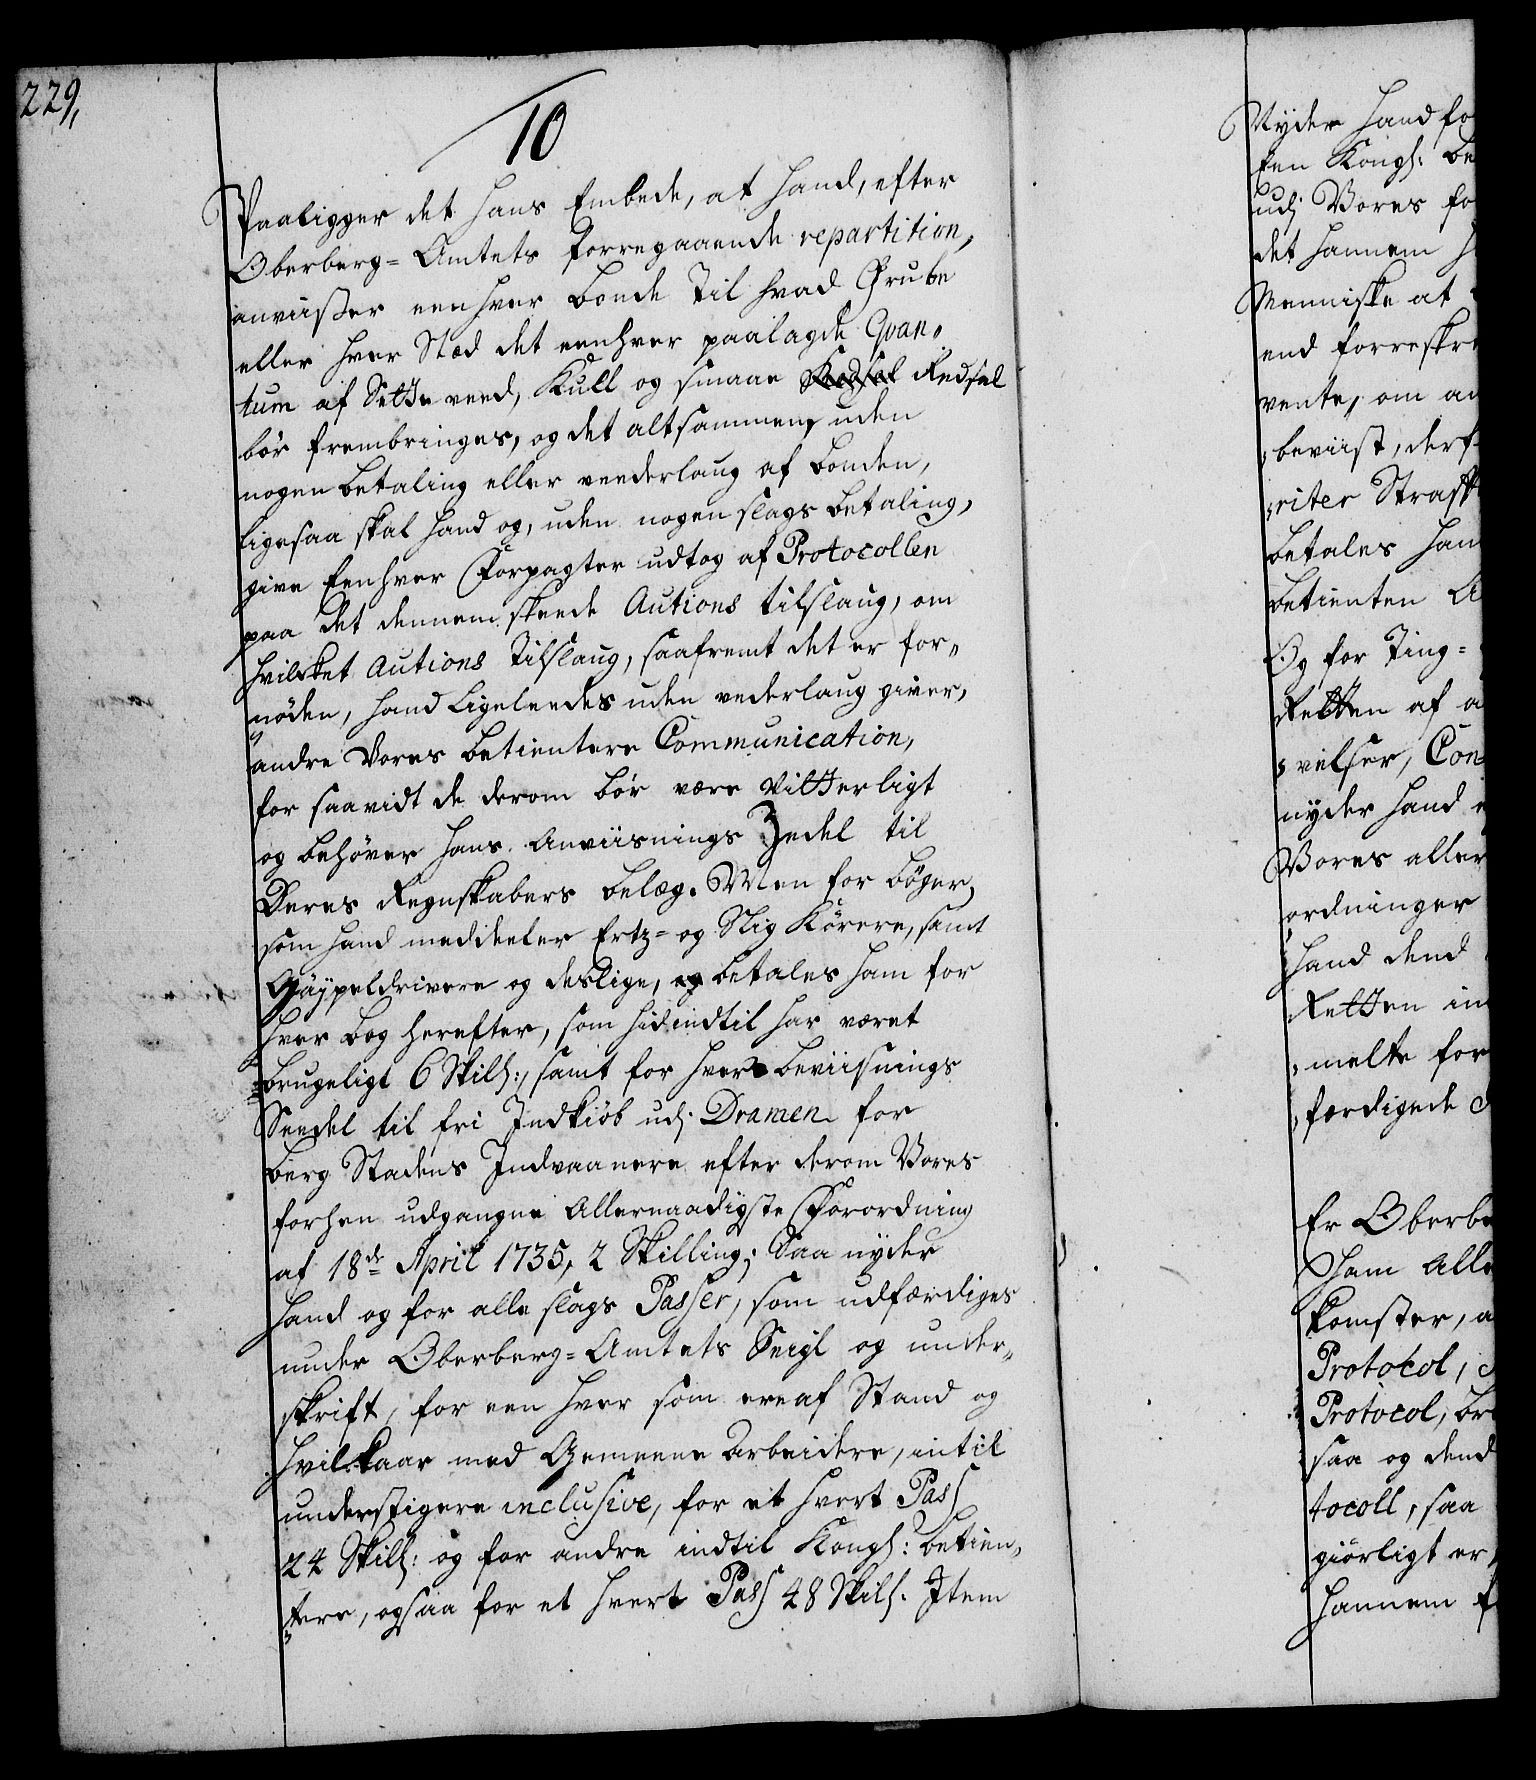 229,
10
Paaligger det hans Embede, at hand, efter
Oberberg-Amtets forregaaende repartition,
anviißer een hver bonde til hvad Grube
eller hver Stæd det eenhver paalagde Qvan-
tum af Sette veed, Kull og smaae Redsel
bör frembringes, og det altsammen, uden
nogen betaling eller veederlaug af bonden,
ligesaa skal hand og, uden nogen slags betaling,
give Eenhver Forpagter udtog af Protocollen
paa det dennem skeede Autions tilslaug, om
hvilcket Autions tilslaug, saafremt det er for„
„nöden, hand ligeleedes uden vederlaug giver,
andre Vores betientere Communication,
for saavidt de derom bör være vitterligt
og behöver hans Anviisnings Zedel til
Deres Regnskabers belæg. Men for böger,
som hand meddeeler Ertz- og Slig Körere, samt
Gäypeldrivere og deslige, betales ham for
hver bog herefter, som hidindtil har været
brugeligt 6 Skill:, samt for hver beviisnings
Seedel til fri Indkiöb udj Dramen for
berg Stadens Indvaanere efter derom Vores
forhen udgangne Allernaadigste Forordning
af 18de April 1735, 2 Skilling; Saa nyder
hand og for alle slags Passer, som udfærdiges
under Oberberg-Amtets Seigl og under„
skrift, for een hver som ere af Stand og
hvilkaar med Gemeene Arbeidere, intil
understigere inclusive, for et hvert Pass
24 Skill: og for andre indtil Kongl: betien„
„tere, ogsaa for et hvert Pass 48 Skill: Item
Nyder hand
Een Kongl:
udj Vores
det hannem
Menniske at
end forreskre
vente, om an
beviist, derf
riter Straff
betales ham
betienten
Og for Ting-
Retten af
velser, Con
nyder hand
Vores aller
ordninger
hand dend
Retten in
melte for
færdigede
Er Oberbe
Ham Alle
komster,
Protocol,
Protocol,
saa og dend
tocoll, saa
giörligt er,
hannem